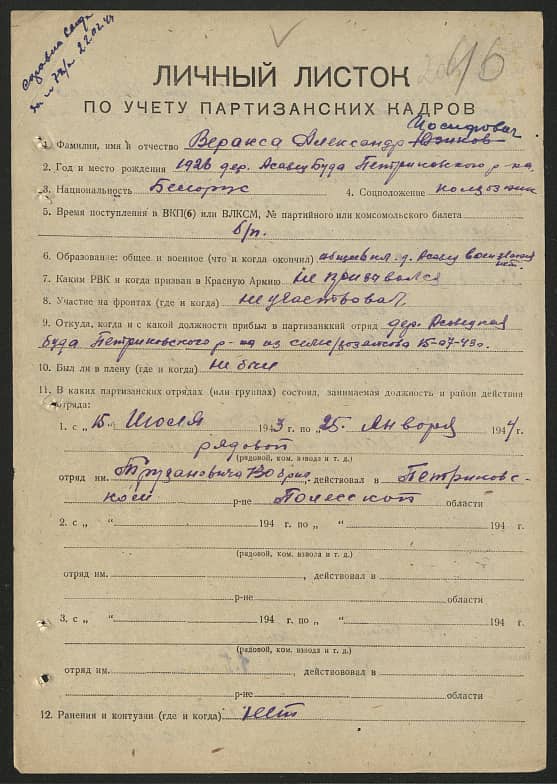 22.02.44
ЛИЧНЫЙ ЛИСТОК
ПО УЧЕТУ ПАРТИЗАНСКИХ КАДРОВ
Иосифович
1. Фамилия, имя и отчество Веракса Александр
2. Год и место рождения 1926 дер. Асавец Буда Петриковского р-на
3. Национальность Белорус 4. Соцположение колхозник
5. Время поступления в ВКП(б) или ВЛКСМ, № партийного или комсомольского билета
б/п.
6. Образование: общее и военное (что и когда окончил) д. Асавец
нет.
7. Каким РВК и когда призван в Красную Армию не призывался
8. Участие на фронтах (где и когда) не участвовал
9. Откуда, когда и с какой должности прибыл в партизанский отряд дер. Асавецкая
Буда Петриковского р-на из 15-07-43г.
10. Был ли в плену (где и когда) не был
11. В каких партизанских отрядах (или группах) состоял, занимаемая должность и район действия
отряда:
1. с „ 15. Июля 1943 г. по „ 25. Января 1944 г.
рядовой
(рядовой, ком. взвода и т. д.)
отряд им. , действовал в Петриковс-
ком р-не Полесской области
2. с „ “ 194 г. по „ “ 194 г.
(рядовой, ком. взвода и т. д.)
отряд им. , действовал в
р-не области
3. с „ “ 194 г. по „ “ 194 г.
(рядовой, ком. взвода и т. д.)
отряд им. , действовал в
р-не области
12. Ранения и контузии (где и когда) нет